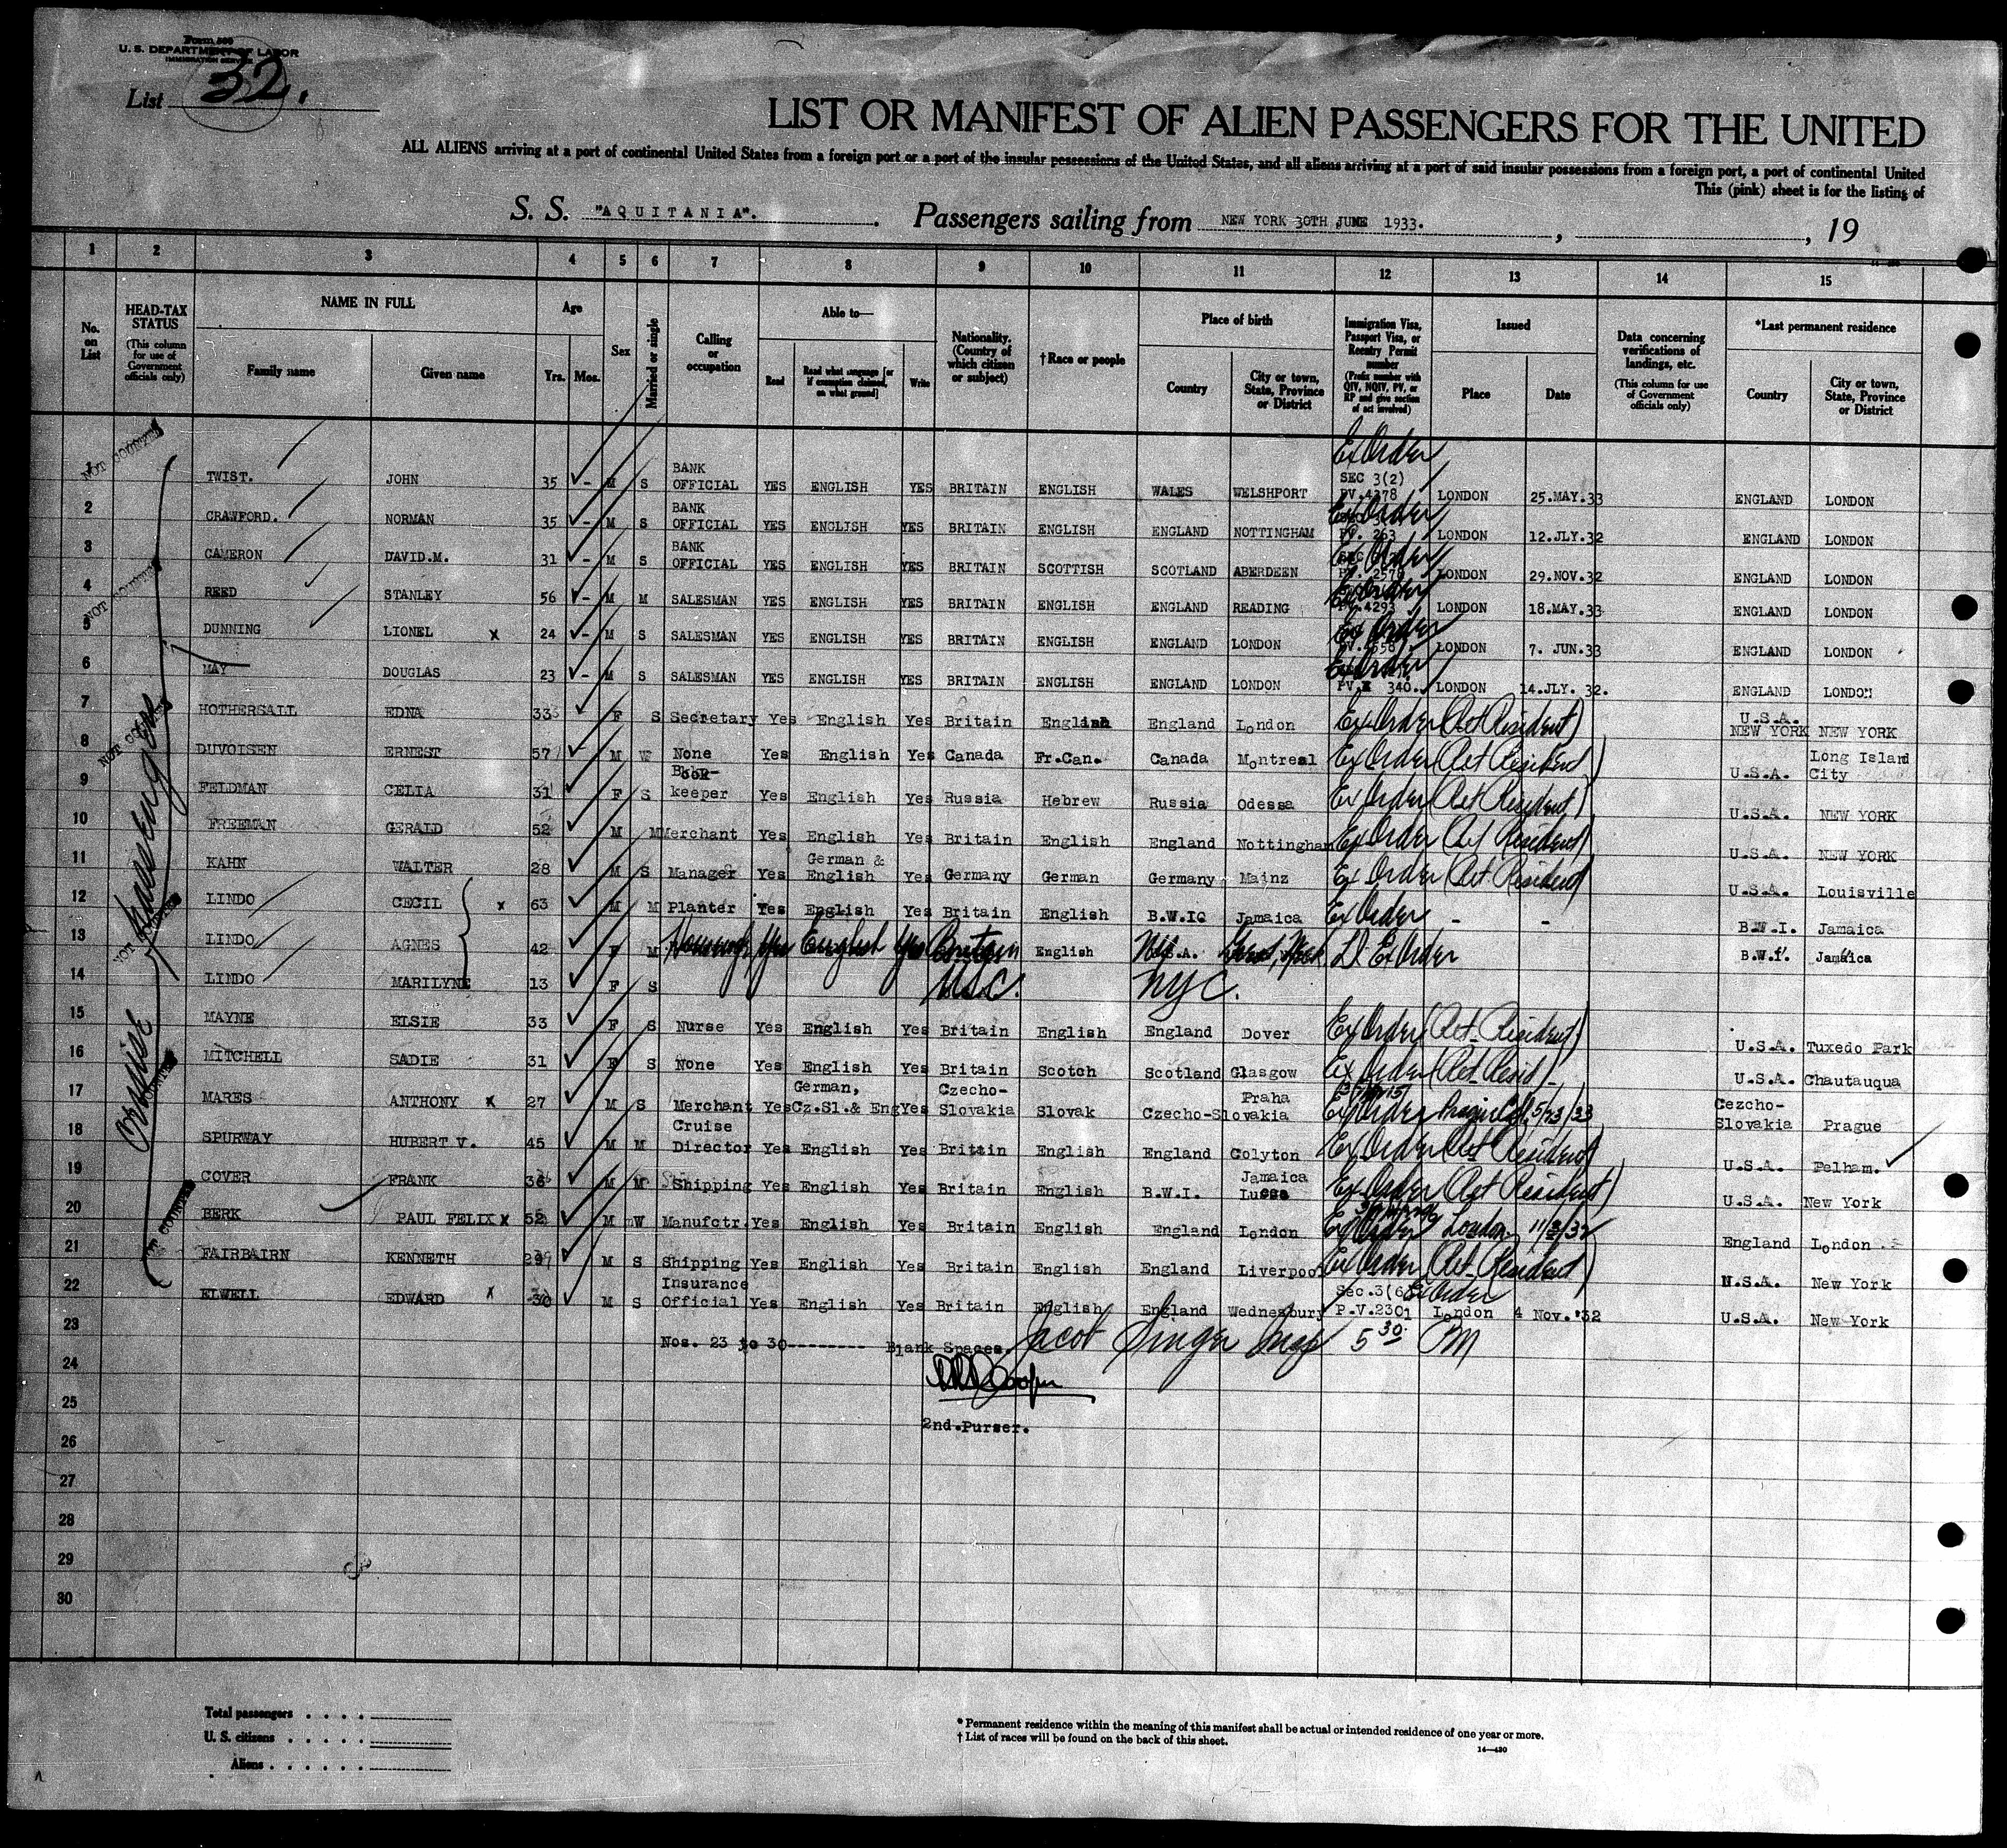 Form 500
U. S. DEPARTMENT OF LABOR
IMMIGRATION SERVICE
List 32.
LIST OR MANIFEST OF ALIEN PASSENGERS FOR THE UNITED
ALL ALIENS arriving at a port of continental United States from a foreign port or a port of the insular possessions of the United States, and all aliens arriving at a port of said insular possessions from a foreign port, a port of continental United
This (pink) sheet is for the listing of
S. S. "AQUITANIA". Passengers sailing from NEW YORK 30TH JUNE 1933. , , 19
1 2 3 4 5 6 7 8 9 10 11 12 13 14 15
No. on List
HEAD-TAX STATUS (This column for use of Government officials only)
NAME IN FULL Family name Given name
Age Yrs. Mos.
Sex
Married or single
Calling or occupation
Able to— Read Read what language [or if exemption claimed, on what ground] Write
Nationality. (Country of which citizen or subject)
†Race or people
Place of birth Country City or town, State, Province or District
Immigration Visa, Passport Visa, or Reentry Permit number (Prefix number with QIV, NQIV, PV, or RP and give section of act involved)
Issued Place Date
Data concerning verifications of landings, etc. (This column for use of Government officials only)
*Last permanent residence Country City or town, State, Province or District
NOT COUNTED
Cruise Passengers
1 TWIST. JOHN 35 - M S BANK OFFICIAL YES ENGLISH YES BRITAIN ENGLISH WALES WELSHPORT Ex Order SEC 3(2) PV.4378 LONDON 25.MAY.33 ENGLAND LONDON
2 CRAWFORD. NORMAN 35 - M S BANK OFFICIAL YES ENGLISH YES BRITAIN ENGLISH ENGLAND NOTTINGHAM Ex Order PV. 263 LONDON 12.JLY.32 ENGLAND LONDON
3 CAMERON DAVID.M. 31 - M S BANK OFFICIAL YES ENGLISH YES BRITAIN SCOTTISH SCOTLAND ABERDEEN Ex Order 2570 LONDON 29.NOV.32 ENGLAND LONDON
4 REED STANLEY 56 - M M SALESMAN YES ENGLISH YES BRITAIN ENGLISH ENGLAND READING Ex Order PV.4293 LONDON 18.MAY.33 ENGLAND LONDON
5 DUNNING LIONEL X 24 - M S SALESMAN YES ENGLISH YES BRITAIN ENGLISH ENGLAND LONDON Ex Order LONDON 7. JUN.33 ENGLAND LONDON
6 MAY DOUGLAS 23 - M S SALESMAN YES ENGLISH YES BRITAIN ENGLISH ENGLAND LONDON Ex Order PV. 340. LONDON 14.JLY. 32. ENGLAND LONDON
7 HOTHERSALL EDNA 33 F S Secretary Yes English Yes Britain English England London Ex Order (Ret Resident) U.S.A. NEW YORK NEW YORK
8 DUVOISEN ERNEST 57 M W None Yes English Yes Canada Fr.Can. Canada Montreal Ex Order (Ret Resident) U.S.A. Long Island City
9 FELDMAN CELIA 31 F S Book-keeper Yes English Yes Russia Hebrew Russia Odessa Ex Order (Ret Resident) U.S.A. NEW YORK
10 FREEMAN GERALD 52 M M Merchant Yes English Yes Britain English England Nottingham Ex Order (Ret Resident) U.S.A. NEW YORK
11 KAHN WALTER 28 M S Manager Yes German & English Yes Germany German Germany Mainz Ex Order (Ret Resident) U.S.A. Louisville
12 LINDO CECIL x 63 M M Planter Yes English Yes Britain English B.W.I. Jamaica Ex Order - - B.W.I. Jamaica
13 LINDO AGNES 42 F M Yes English Yes Britain English U.S.A. Ex Order B.W.I. Jamaica
14 LINDO MARILYNE 13 F S U.S.C. NYC.
15 MAYNE ELSIE 33 F S Nurse Yes English Yes Britain English England Dover Ex Order (Ret. Resident) U.S.A. Tuxedo Park
16 MITCHELL SADIE 31 F S None Yes English Yes Britain Scotch Scotland Glasgow Ex Order (Ret. Resid) U.S.A. Chautauqua
17 MARES ANTHONY X 27 M S Merchant Yes German, Cz.Sl.& Eng Yes Czecho-Slovakia Slovak Czecho-Slovakia Praha Ex Order Prague 5/23/33 Cezcho-Slovakia Prague
18 SPURWAY HUBERT V. 45 M M Cruise Director Yes English Yes Britain English England Colyton Ex Order (Ret Resident) U.S.A. Pelham.
19 COVER FRANK 36 M M Shipping Yes English Yes Britain English B.W.I. Jamaica Lucea Ex Order (Ret Resident) U.S.A. New York
20 BERK PAUL FELIX X 52 M W Manufctr. Yes English Yes Britain English England London Ex Order London England London
21 FAIRBAIRN KENNETH 29 M S Shipping Yes English Yes Britain English England Liverpool Ex Order (Ret. Resident) U.S.A. New York
22 ELWELL EDWARD X 30 M S Insurance Official Yes English Yes Britain English England Wednesbury Sec.3(6) Ex Order P.V.2301 London 4 Nov.'32 U.S.A. New York
23 Nos. 23 to 30-------- Blank Spaces. Jacob Singer Insp 5 30 PM
24 Cooper
25 2nd.Purser.
26
27
28
29
30
Total passengers . . . .
U. S. citizens . . . . .
Aliens . . . . . .
* Permanent residence within the meaning of this manifest shall be actual or intended residence of one year or more.
† List of races will be found on the back of this sheet.
14—430